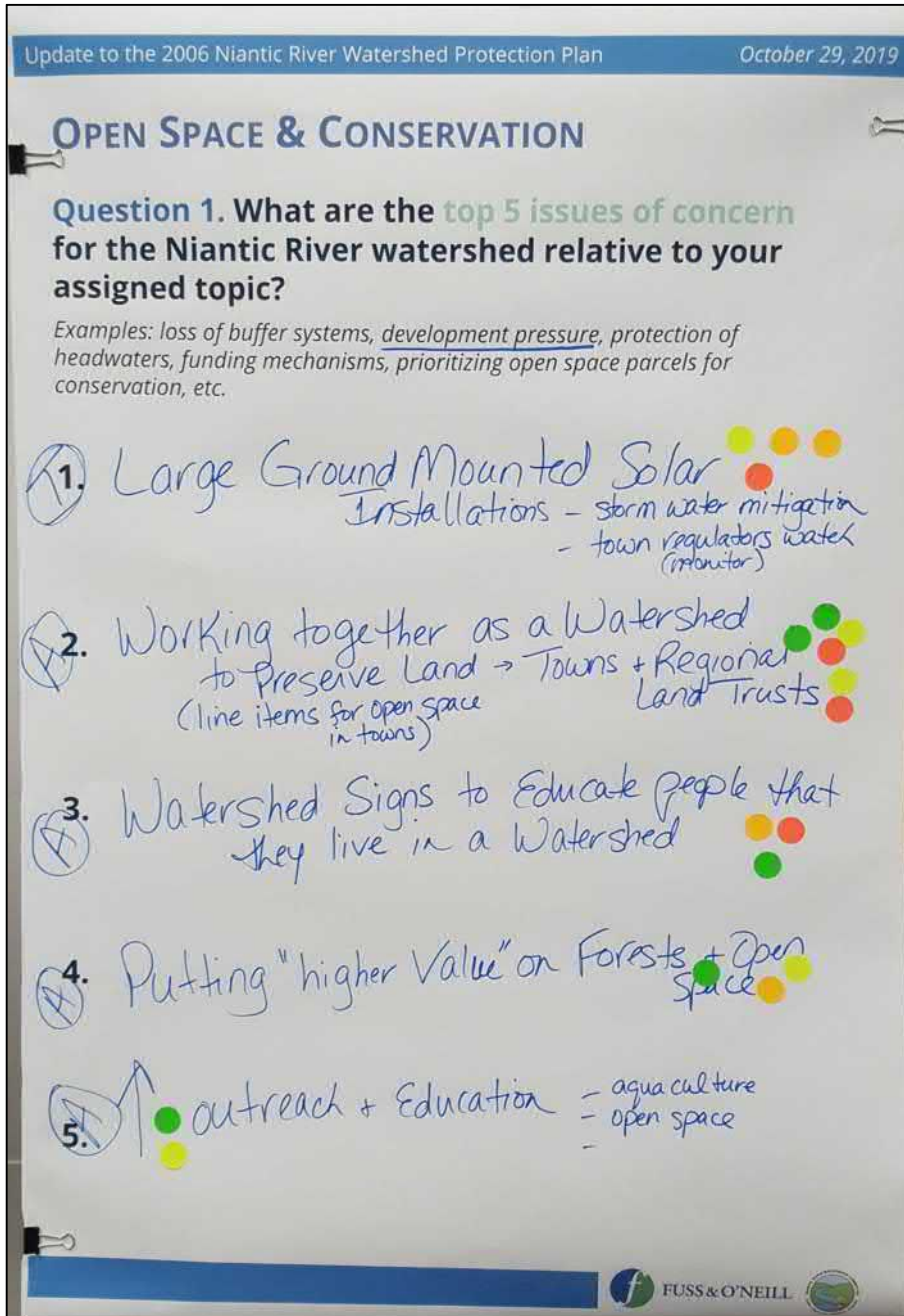 Update to the 2006 Niantic River Watershed Protection Plan October 29, 2019
OPEN SPACE & CONSERVATION
Question 1. What are the top 5 issues of concern
for the Niantic River watershed relative to your
assigned topic?
Examples: loss of buffer systems, development pressure, protection of
headwaters, funding mechanisms, prioritizing open space parcels for
conservation, etc.
1. Large Ground Mounted Solar
Installations - storm water mitigation
- town regulators watch
(monitor)
2. Working together as a Watershed
to Preserve Land → Towns + Regional
Land Trusts
(line items for open space
in towns)
3. Watershed Signs to Educate people that
they live in a Watershed
4. Putting "higher Value" on Forests + Open
Space
5. ↑ outreach + Education - aquaculture
- open space
-
FUSS & O'NEILL